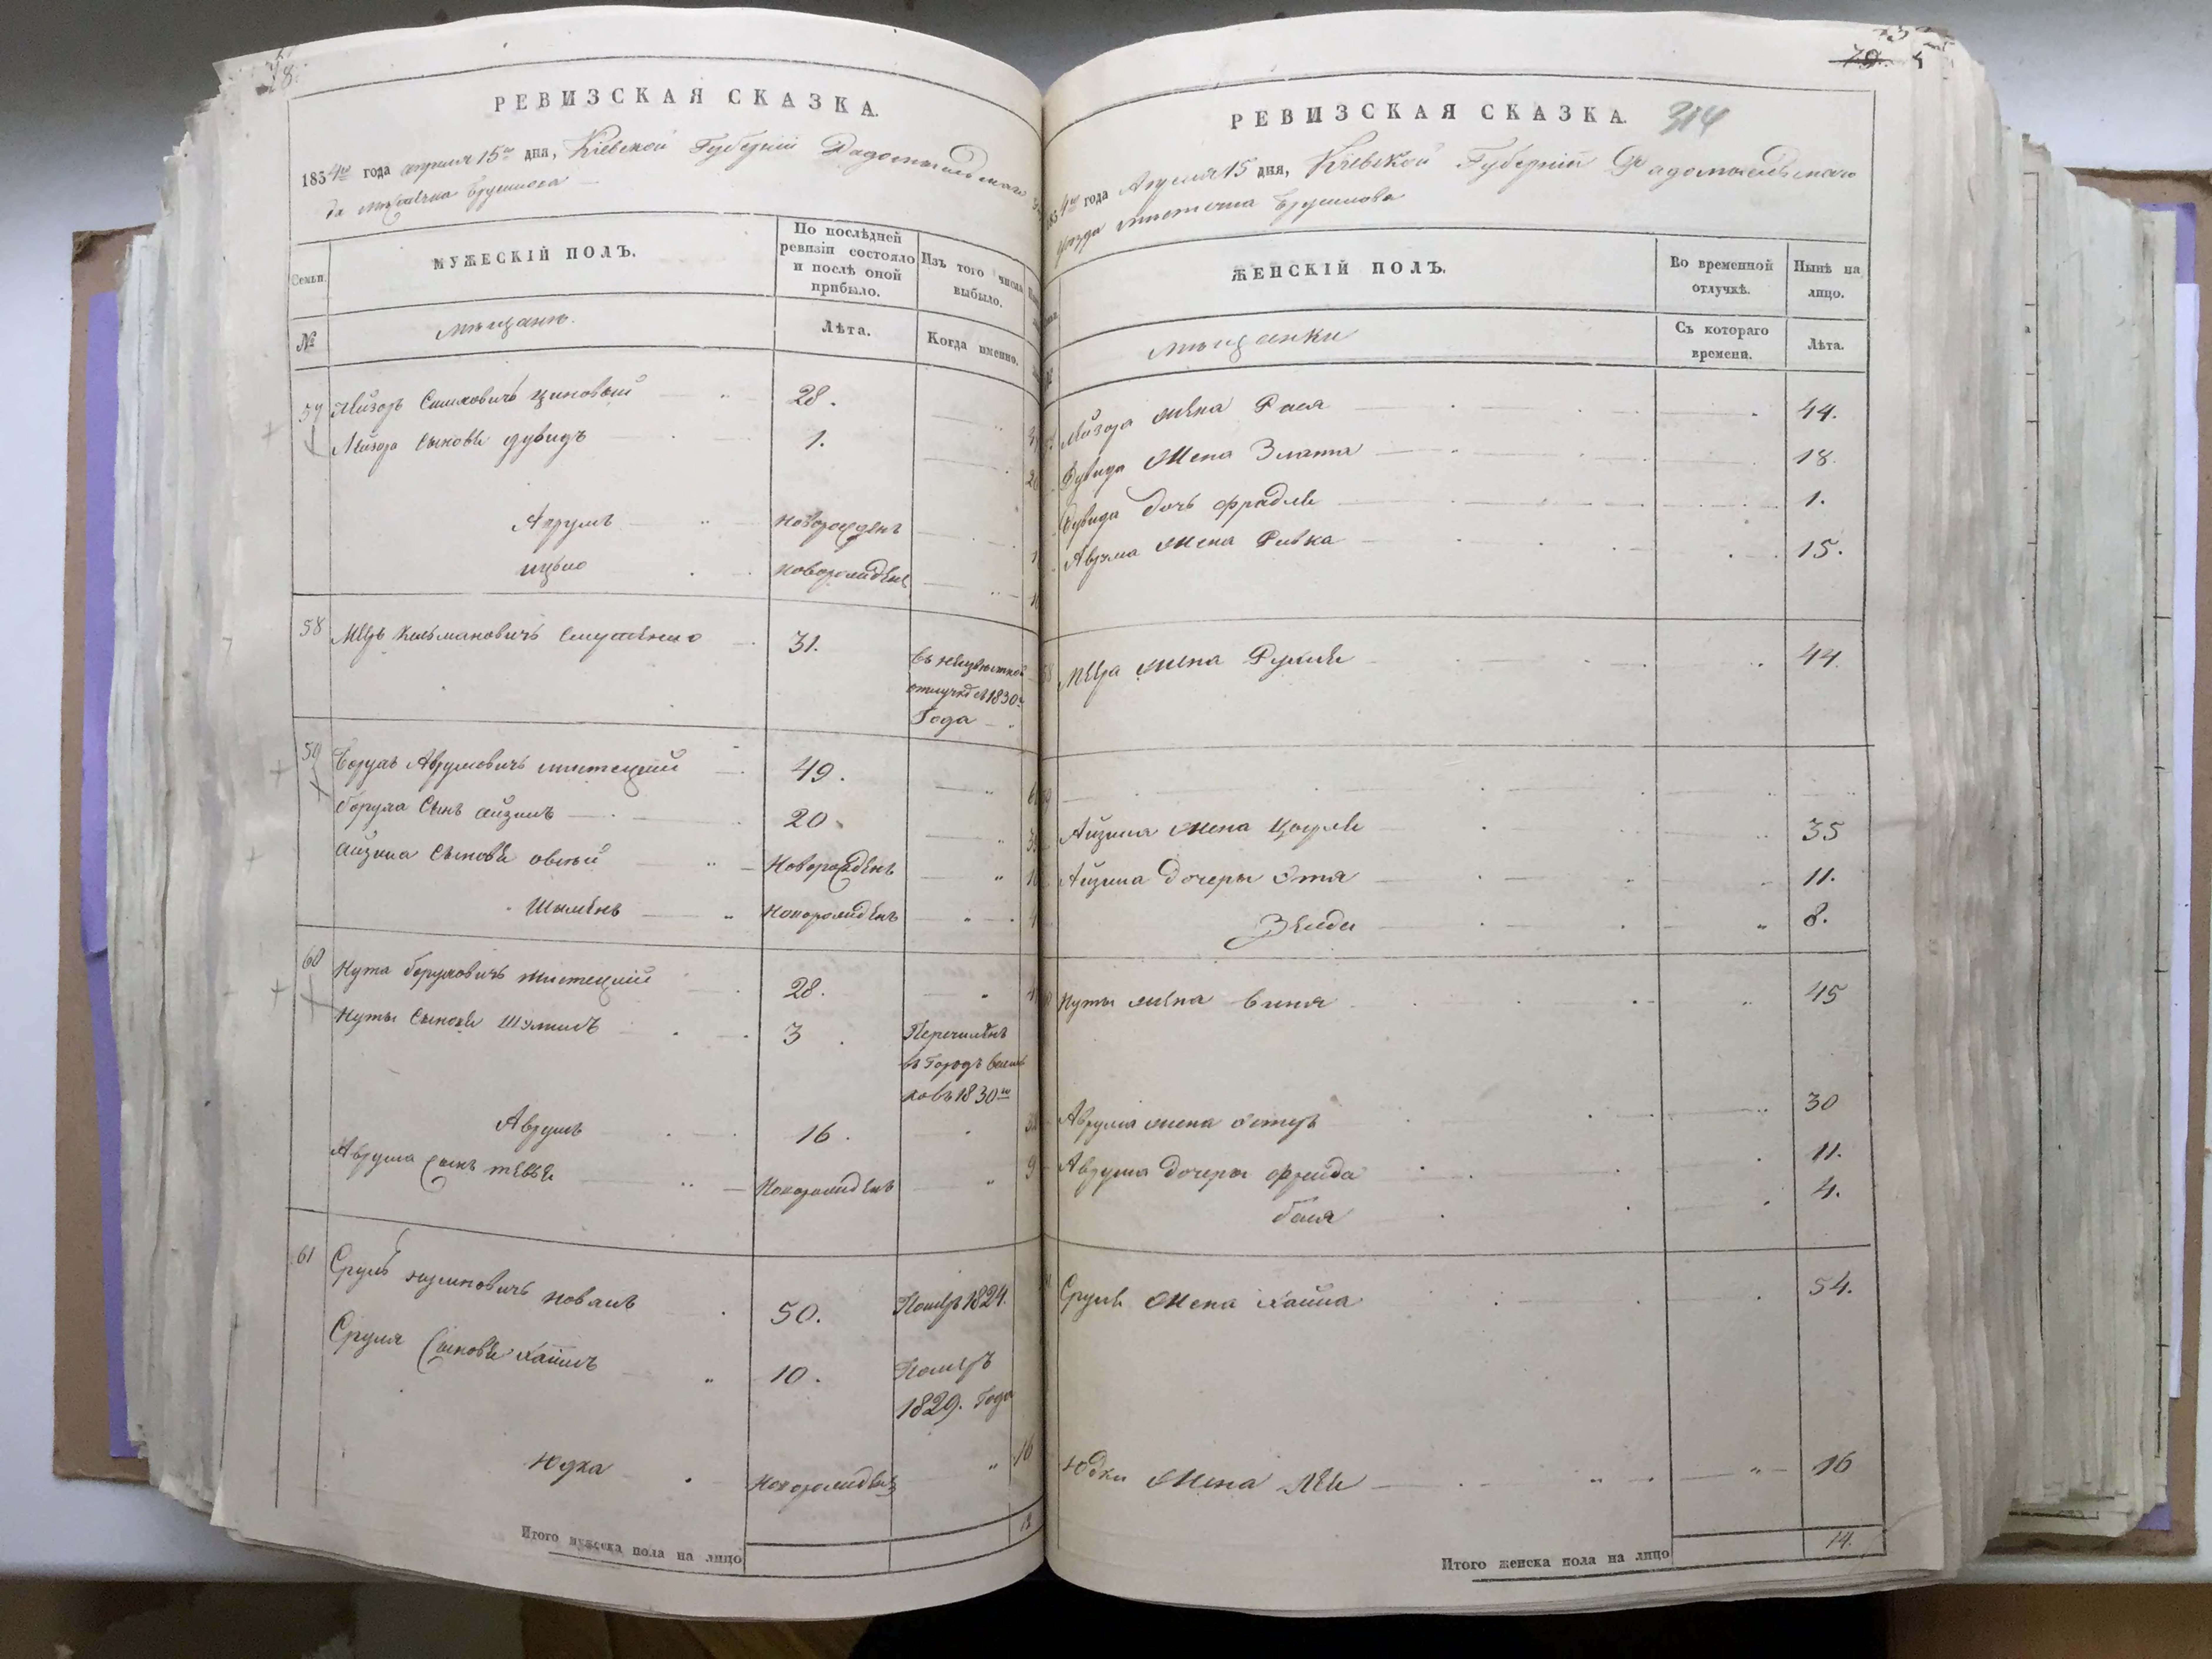 78.
РЕВИЗСКАЯ СКАЗКА.
1854го года апреля 15го дня, Кіевской Губерніи Радомысльскаго
да местечка Брусилова
Семьи.
МУЖЕСКІЙ ПОЛЪ.
По послѣдней ревизіи состояло и послѣ оной прибыло.
Изъ того числа выбыло.
№
мещане.
Лѣта.
Когда именно.
57 Лейзоръ Симховичъ Циновый 28.
Лейзора сыновъя Дувидъ 1.
Аврумъ новорожденъ
Ицько новорожденъ
58 Меръ Кельмановичъ 31. въ неизвестной
отлучке с 1830го
Года
59 Борухъ Аврумовичъ 49.
Боруха Сынъ Айзикъ 20
Айзика Сыновья Овсей Новорожденъ
Шименъ новорожденъ
60 Нута Боруховичъ 28.
Нуты Сыновья Шулимъ 3 Перечисленъ
въ Городъ Василь
ковъ 1830го
Аврумъ 16.
Аврума сынъ Тевье Новорожденъ 9
61 Сруль Новакъ 50. Померъ 1824.
Сруля Сыновья Хаимъ 10. Померъ
1829. Года
Юдка новорожденъ 16
Итого мужеска пола на лицо 12
79.
РЕВИЗСКАЯ СКАЗКА. 314
1854го года Апреля 15 дня, Кіевской Губерніи Радомысльскаго
уезда местечка Брусилова
ЖЕНСКІЙ ПОЛЪ.
Во временной отлучкѣ.
Нынѣ на лицо.
мещанки
Съ котораго времени.
Лѣта.
Лейзора жена Рася 44.
Дувида жена Злата 18.
Дувида дочь Фрадля 1.
Аврума жена Ривка 15.
58 Мера жена Рухля 44.
59
Айзика жена 35
Айзика дочеры Этя 11.
Зелда 8.
Нуты жена 45
Аврума жена Естеръ 30
Аврума дочеры Фрейда 11.
Бася 4.
Сруля жена Хайка 54.
Юдки жена Лея 16
Итого женска пола на лицо 14.